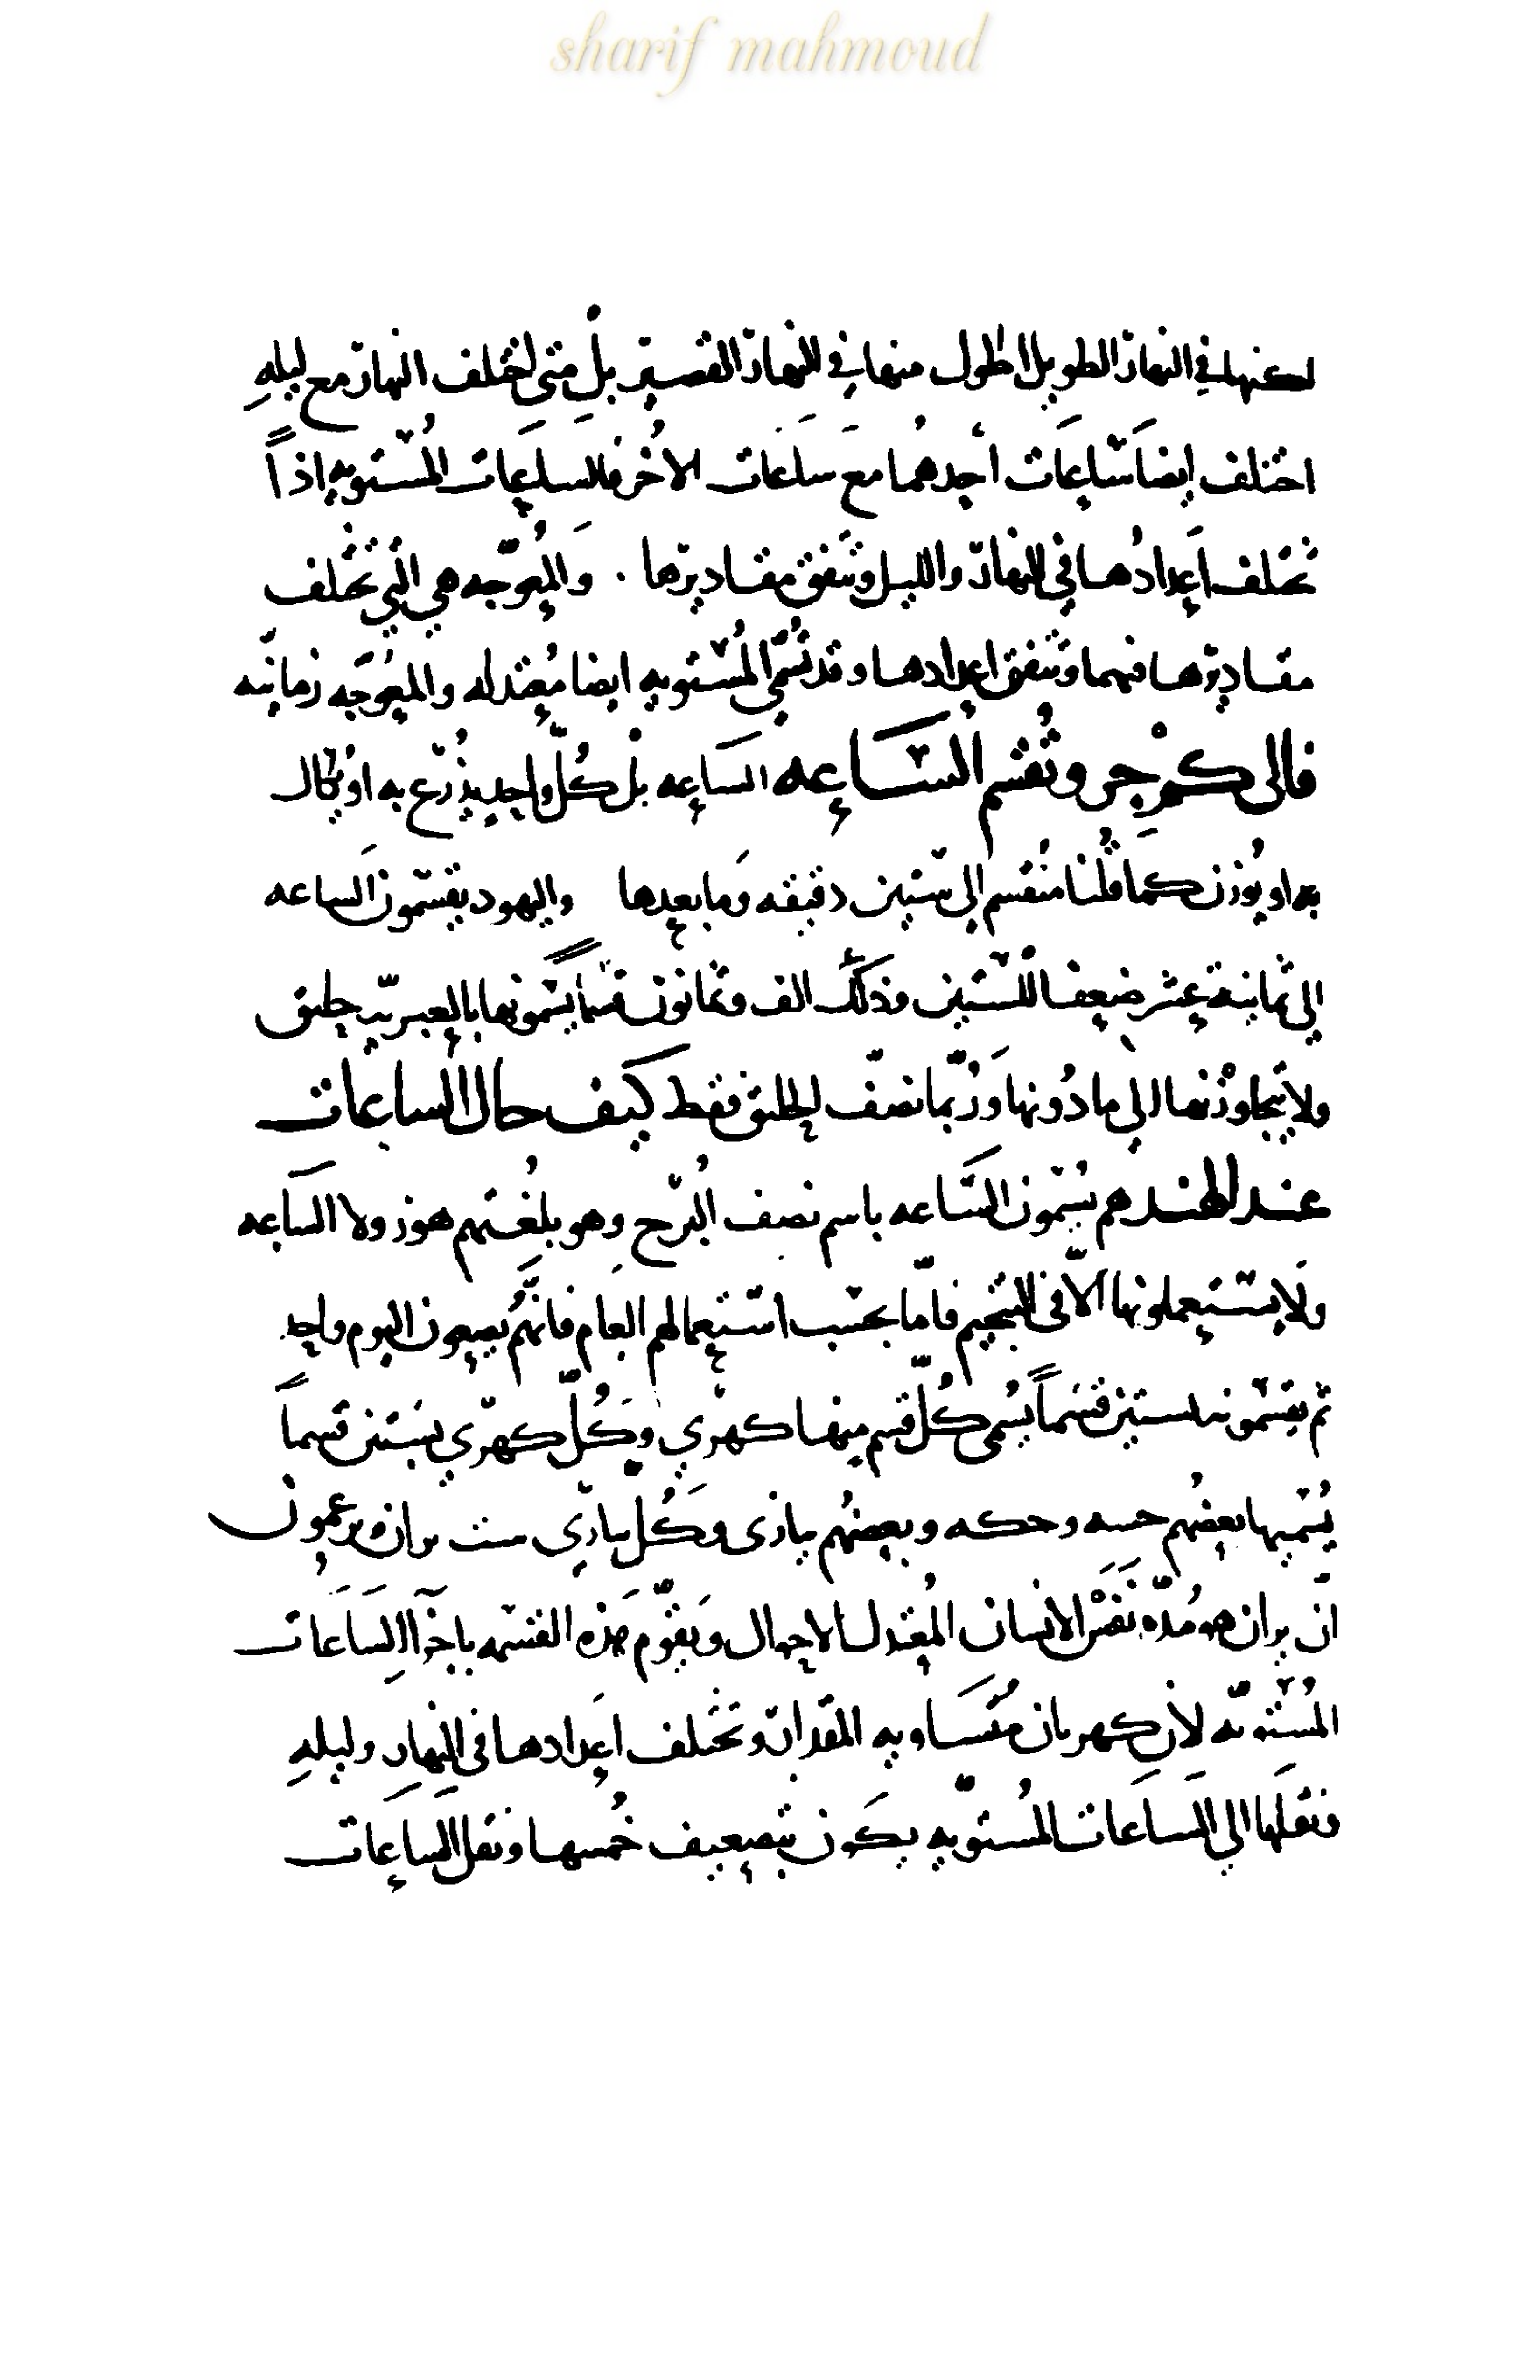 sharif mahmoud
لكنها في النهار الطويل اطول منها في النهار القصير بل متى اختلف النهار مع ليله
اختلف ايضا ساعات أحدهما مع ساعات الاُخر فالساعات المُستويه اذاً
تختلف أعدادُها في النهار والليل وتتفق مقاديرها . والمُعوجّه هي الّتي تختلف
مقاديرها فيهما وتتفق اعدادها وقد تُسمّى المُستويه ايضا مُعتدله والمُعوَجّه زمانيّه
فالى كم جر وتُقسم السَّاعه الساعه بل كُلّ واحد يذرع به او يُكال
به او يُوزن كما قُلنا مُنقسم الى ستين دقيقه وَما بعدها واليهود يقسمون الساعه
الى ثمانية عشر ضعفا للستين وذلك الف وثمانون قسماً يسمّونها بالعبريّه حلق
ولا يتجاوزنها الى ما دُونها وَرُبّما نصّف الحلق فقط كيف حال الساعات
عند الهند هم يُسمّون السّاعه باسم نصف البُرج وهو بلغتهم هور ولا الساعه
وَلا يستعملونها الّا في التنجيم فامّا بحسب استعمالهم العام فانّهُم يضعون اليوم واحد
ثم يقسمونه بستين قسَماً يُسمى كُلّ قسم منها كهري وَكُلّ كهرّي بستين قسماً
يُسمّيها بعضُهم حسه وحكه وبعضُهم بازى وَكُل بازي ست بران ويزعمون
انّ بران هو مُدّه نَفَسْ الانسان المُعتدل الاحوال ويقوّم هَذه القسمه باجزآ السَاعَات
المُستويّه لأن كهريان مُتسَاويه المقدار وتختلف اعدادها في النهار وليله
ونقلَها الى السَاعَات المُستويّه يكون بتضعيف خُمسها ونقل الساعَات